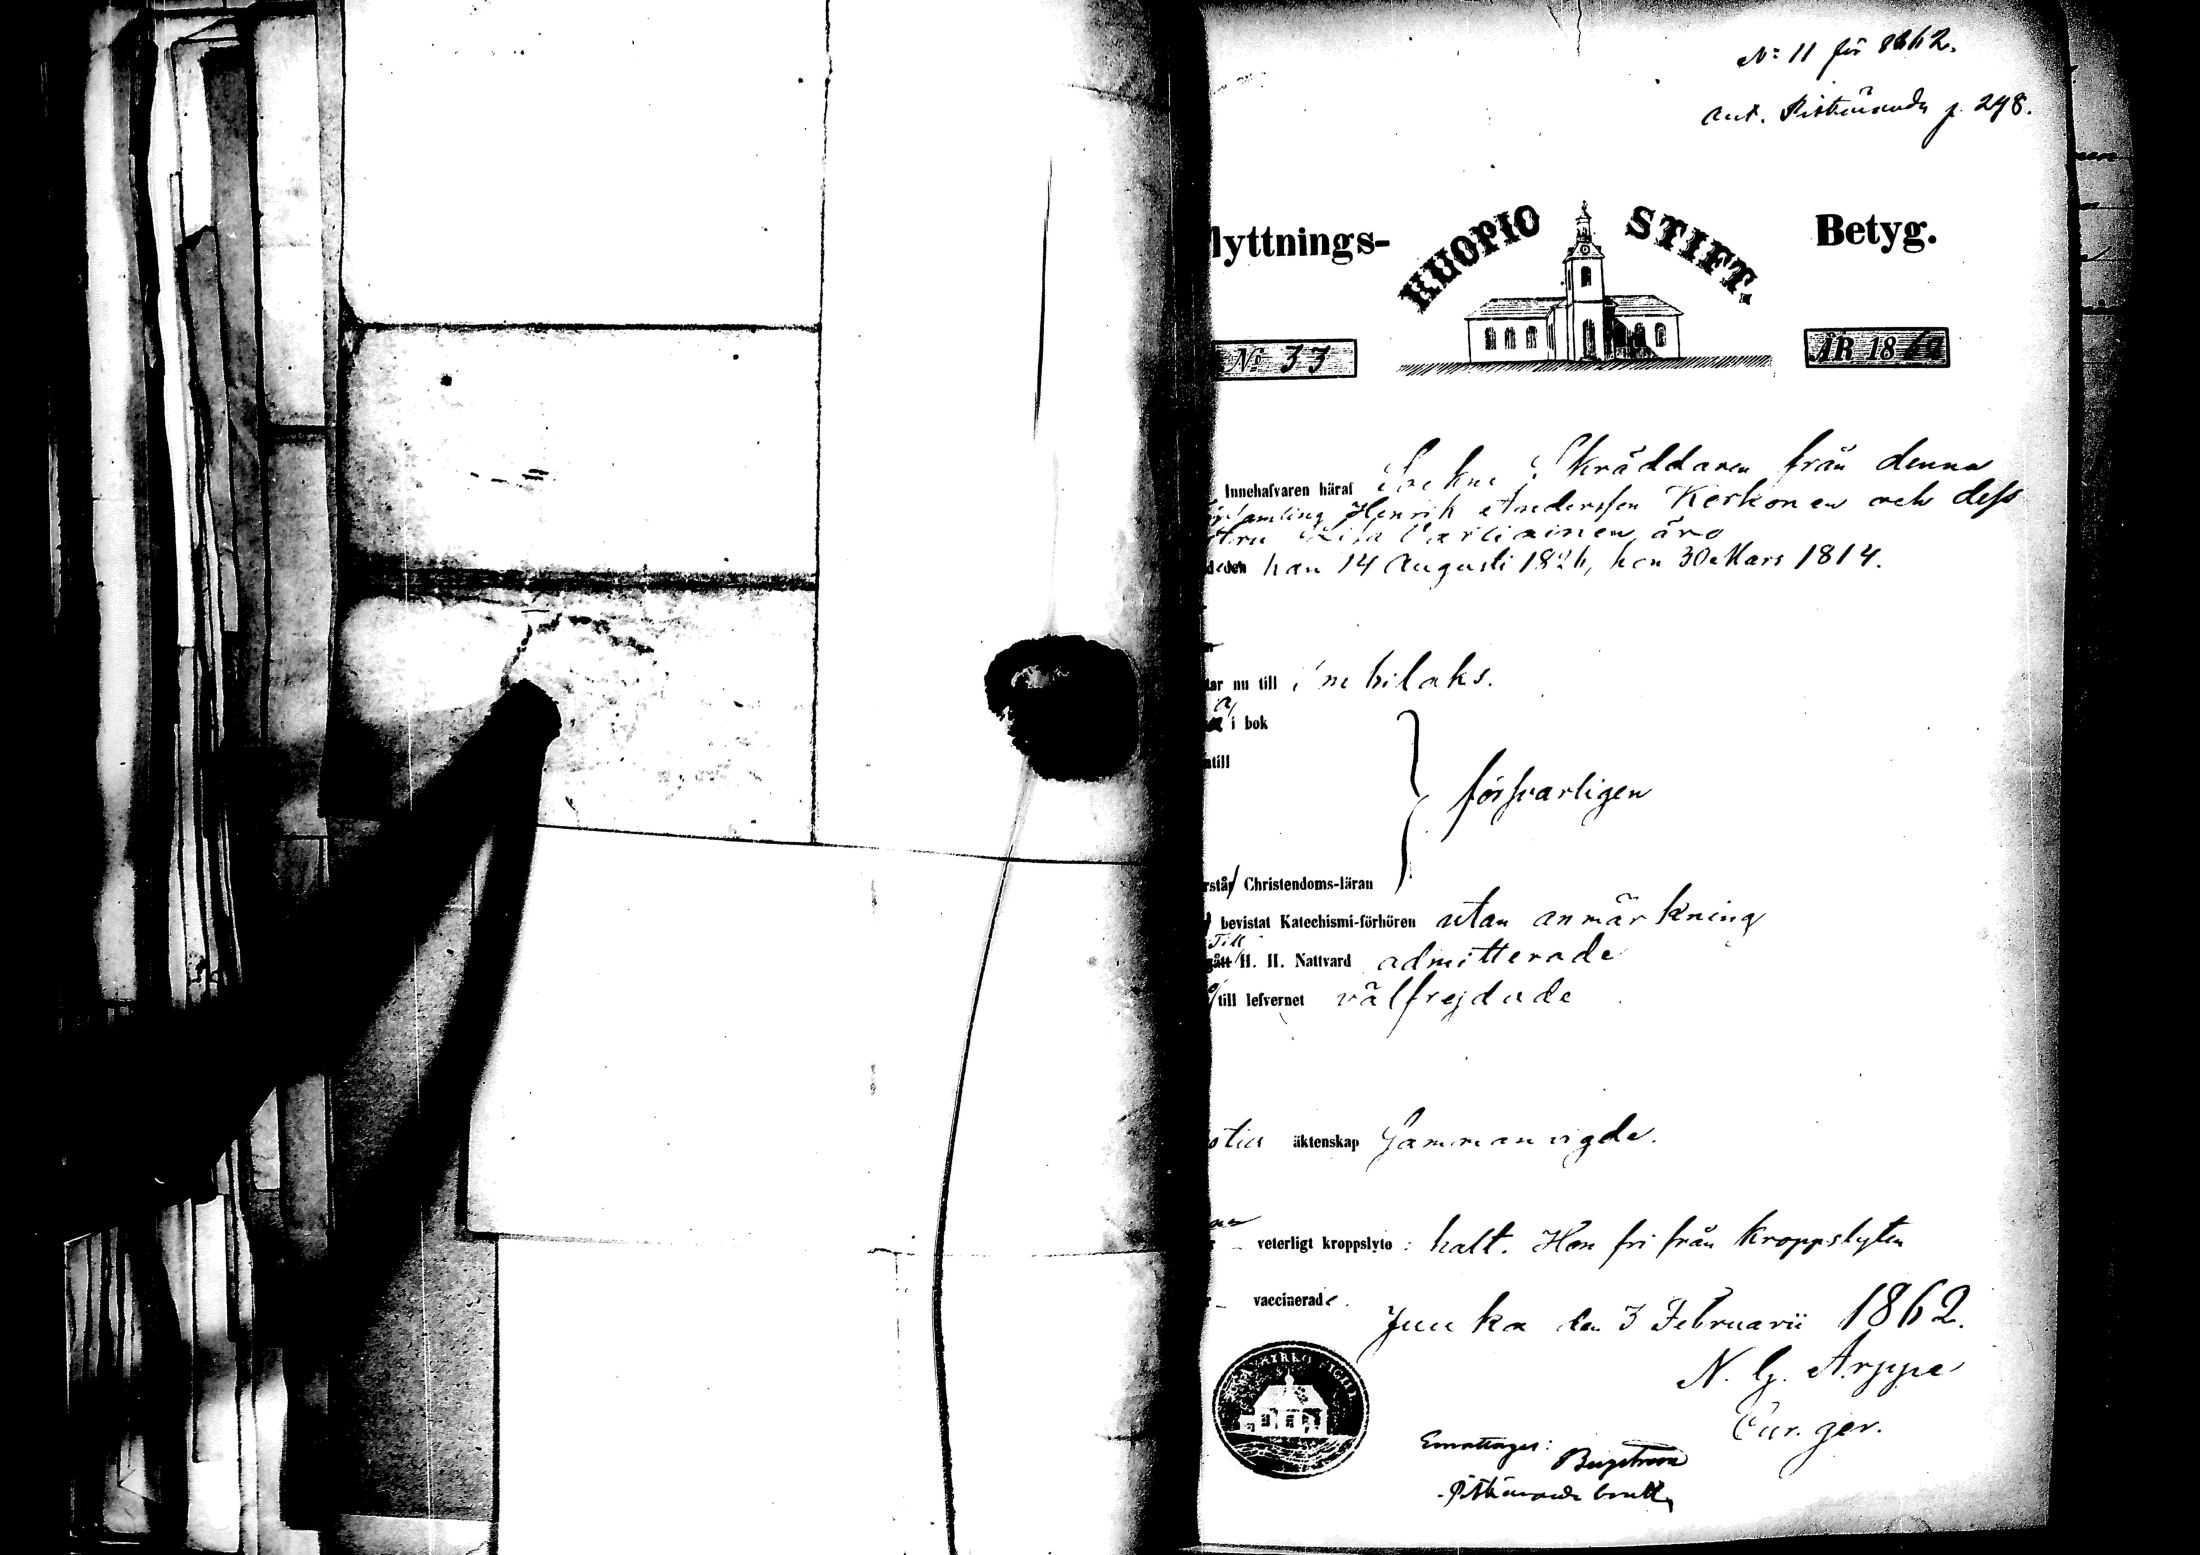 No 11 för 1862.
Ant. Pitkäranda p. 248.
lyttnings-
KUOPIO STIFT.
Betyg.
No 33
ÅR 18
Innehafvaren häraf Sockne Skräddaren från denna
Henrik Anderssen Kerkonen och dess
äro
han 14 Augusti 1826, hon 30 Mars 1814.
nu till Imbilaks.
i bok
försvarligen
Christendoms-läran
bevistat Katechismi-förhören utan anmärkning
Till
gått H. H. Nattvard admitterade
till lefvernet välfrejdade
äktenskap Sammanvigde.
veterligt kroppslyte : halt. Hon fri från kroppslyten
vaccinerade.
Juuka den 3 Februarii 1862.
N. G. Arppe
Cur. ger.
KIRKO SIGILL
Emottaget:
Bergstrom
Pitkäranda